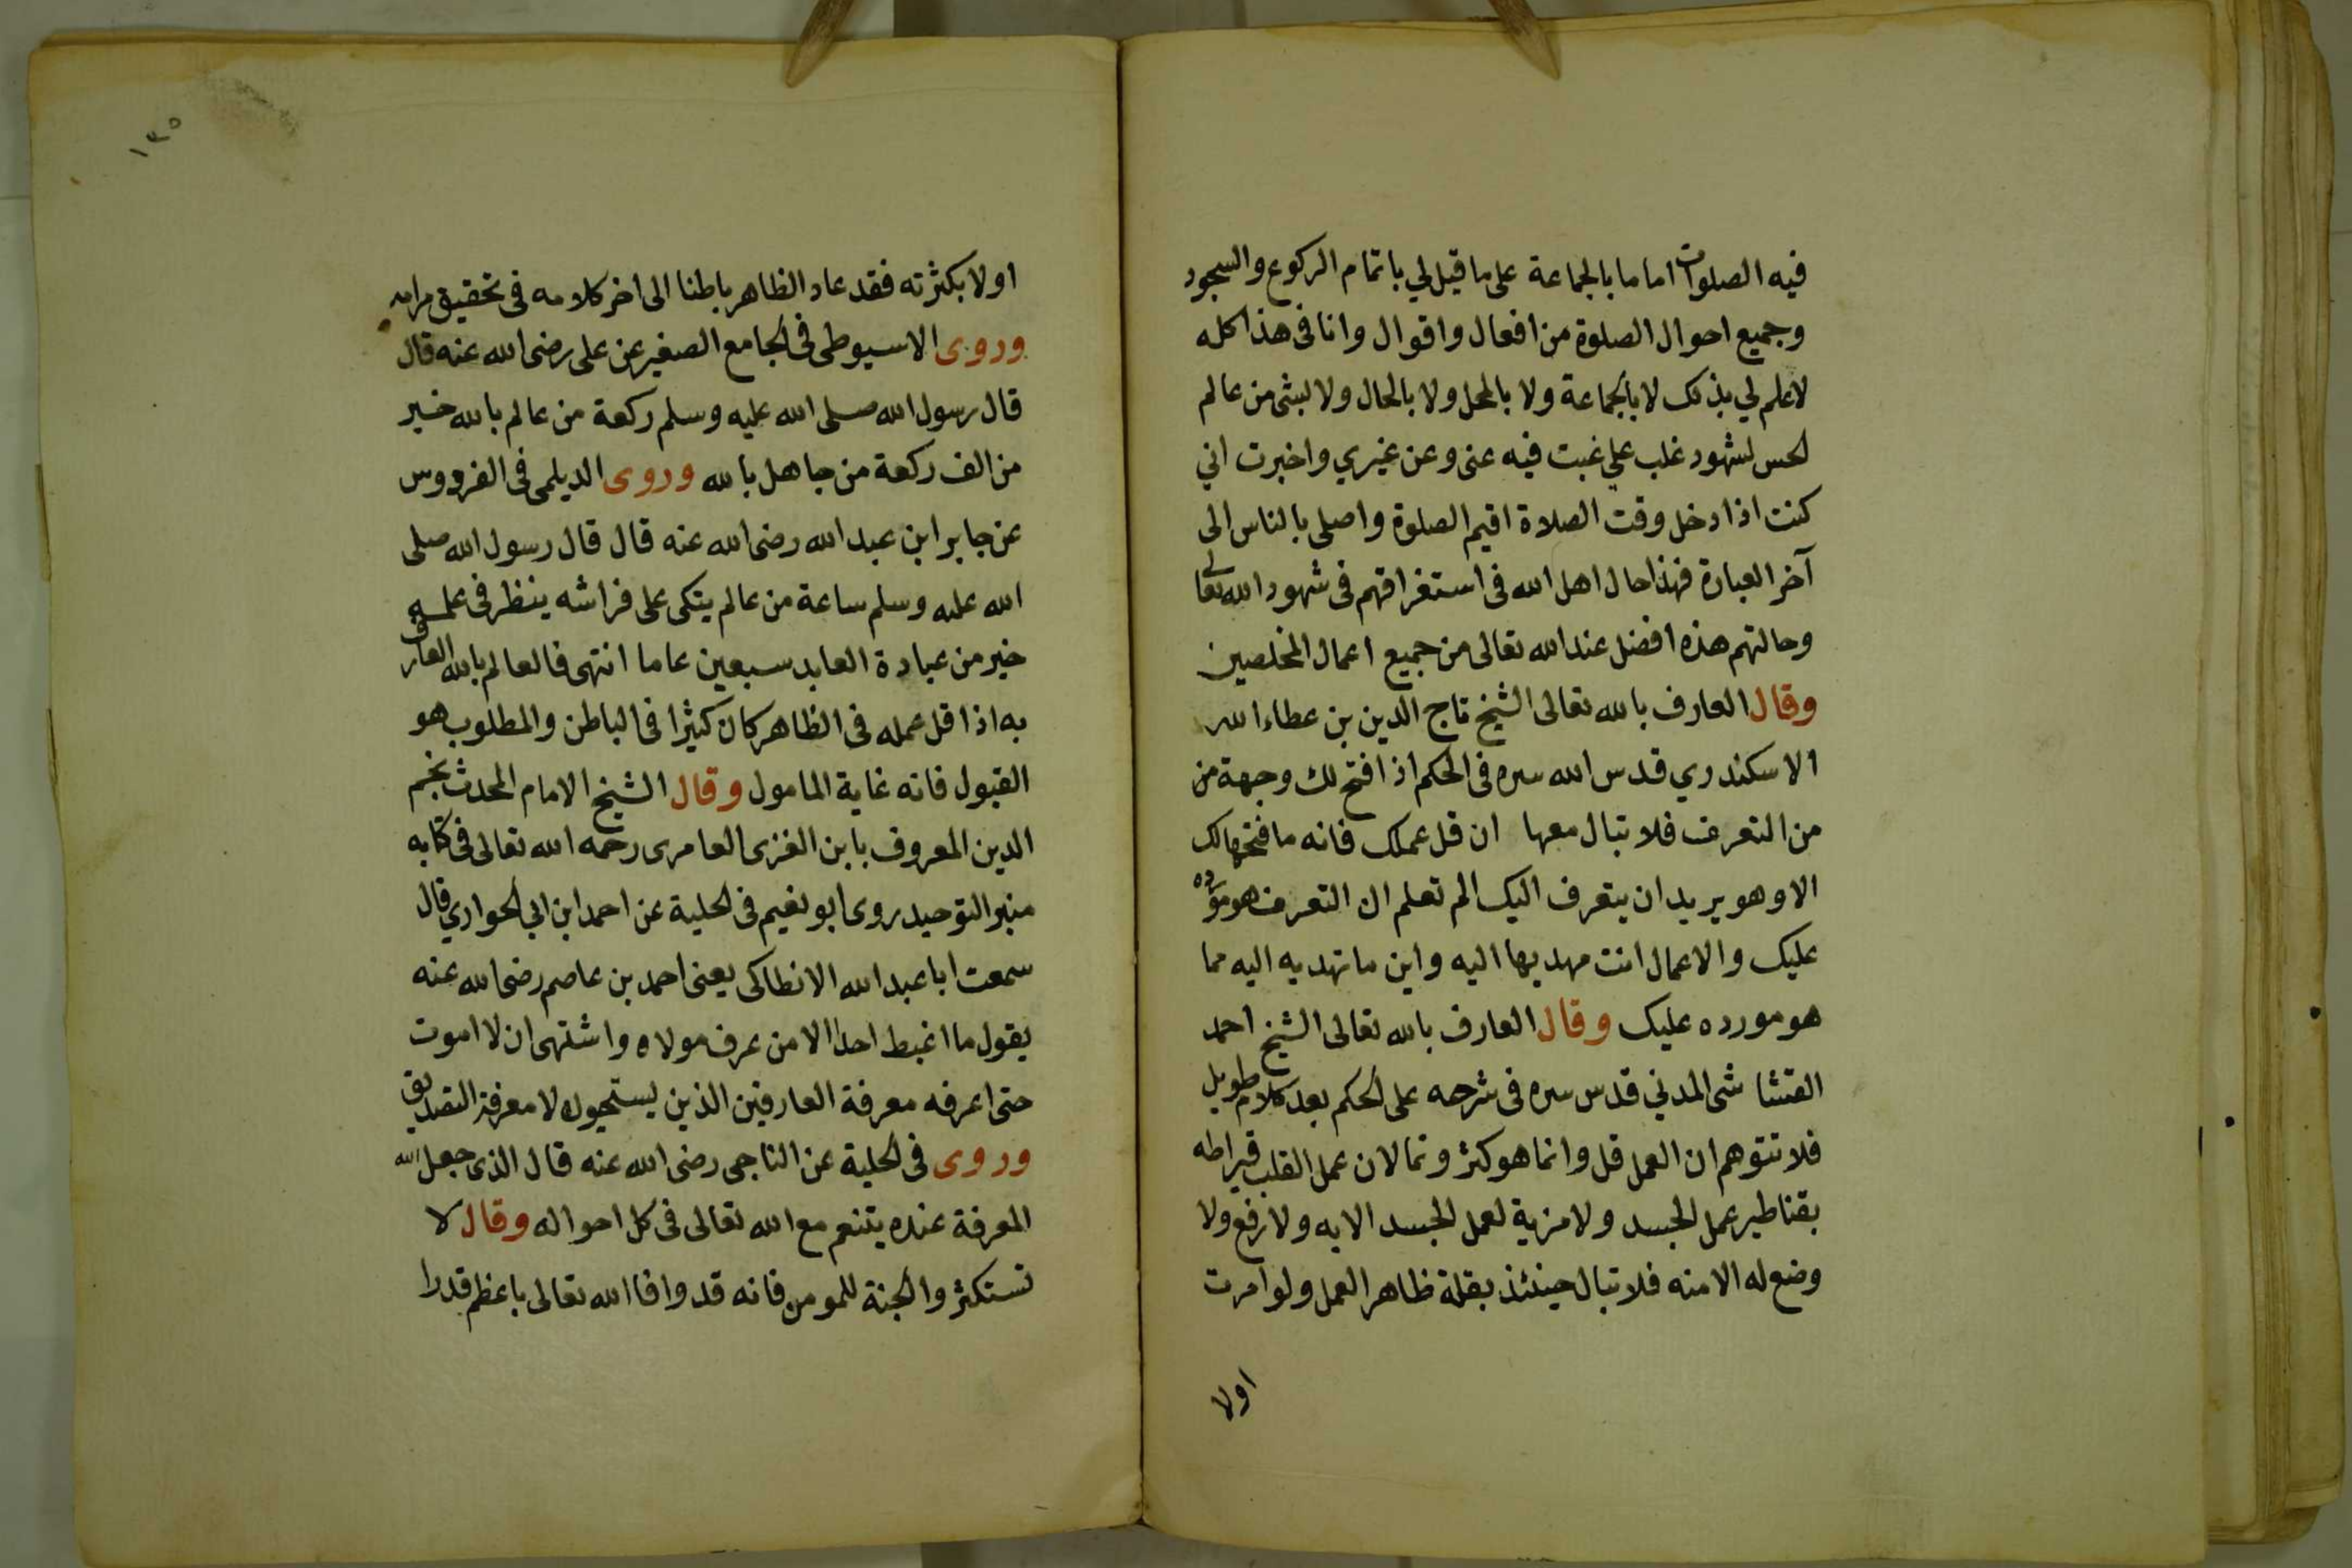 فيه الصلوات اماما بالجماعة على ما قيل لي باتمام الركوع والسجود
وجميع احوال الصلوة من افعال واقوال وانا فى هذا كله
لا علم لي بذلك لا بالجماعة ولا بالمحل ولا بالحال ولا لشى من عالم
الحس لشهود غلب علي غبت فيه عنى وعن غيري واخبرت اني
كنت اذا دخل وقت الصلاة اقيم الصلوة واصلى بالناس الى
آخر العبارة فهذا حال اهل الله فى استغراقهم فى شهود الله تعالى
وحالتهم هذه افضل عند الله تعالى من جميع اعمال المخلصين
وقال العارف بالله تعالى الشيخ تاج الدين بن عطاء الله
الاسكندري قدس الله سره فى الحكم اذا فتح لك وجهة من
من التعرف فلا تبال معها ان قل عملك فانه ما فتحها لك
الا وهو يريد ان يتعرف اليك الم تعلم ان التعرف هو مورده
عليك والاعمال انت مهديها اليه واين ما تهديه اليه مما
هو مورده عليك وقال العارف بالله تعالى الشيخ احمد
القشاشى المدني قدس سره فى شرحه على الحكم بعد كلام طويل
فلا تتوهم ان العمل قل وانما هو كثر ونما لان عمل القلب قيراطه
بقناطير عمل الجسد ولا مزية لعمل الجسد الا به ولا رفع ولا
وضع له الا منه فلا تبال حينئذ بقلة ظاهر العمل ولو امرت
اولا
١٣٥
اولا بكثرته فقد عاد الظاهر باطنا الى اخر كلامه فى تحقيق مرامه
وروى الاسيوطى فى الجامع الصغير عن على رضى الله عنه قال
قال رسول الله صلى الله عليه وسلم ركعة من عالم بالله خير
من الف ركعة من جاهل بالله وروى الديلمى فى الفردوس
عن جابر ابن عبد الله رضى الله عنه قال قال رسول الله صلى
الله عليه وسلم ساعة من عالم يتكى على فراشه ينظر فى علمه
خير من عبادة العابد سبعين عاما انتهى فالعالم بالله العارف
به اذا قل عمله فى الظاهر كان كثيرا فى الباطن والمطلوب هو
القبول فانه غاية المامول وقال الشيخ الامام المحدث نجم
الدين المعروف بابن الغزى العامرى رحمه الله تعالى فى كتابه
منبر التوحيد روى ابو نعيم فى الحلية عن احمد ابن ابي الحواري قال
سمعت ابا عبد الله الانطاكى يعنى احمد بن عاصم رضى الله عنه
يقول ما اغبط احدا الا من عرف مولاه واشتهى ان لا اموت
حتى اعرفه معرفة العارفين الذين يستحيون لا معرفة التصديق
وروى فى الحلية عن الناجى رضى الله عنه قال الذى جعل الله
المعرفة عنده يتنعم مع الله تعالى فى كل احواله وقال لا
تستكثر والجنة للمومن فانه قد وافا الله تعالى باعظم قدرا